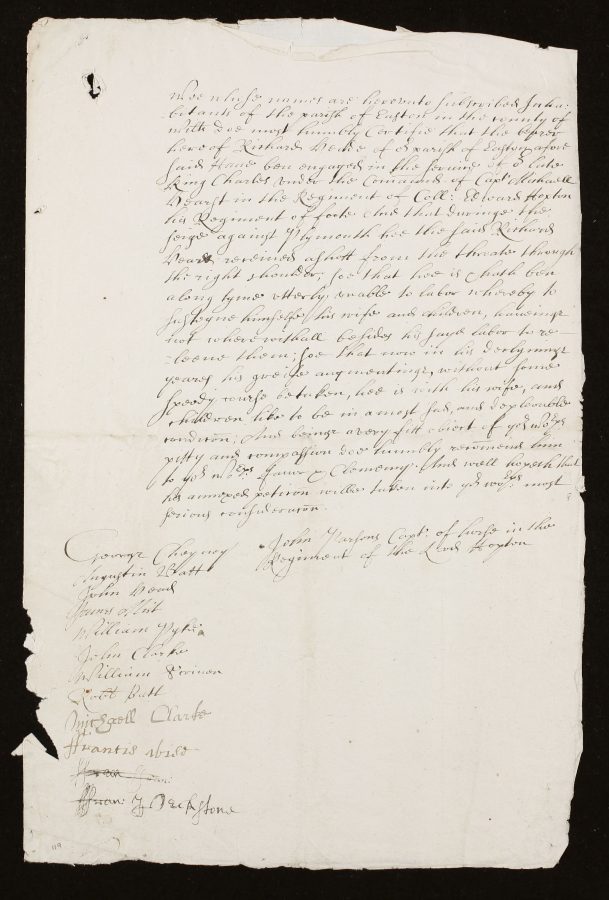 Wee whose names are hereunto subscribed Inha:
bitants of the parish of Easton in the County of
Wilts doe most humbly Certifie that the bearer
here of Richard of parish of Easton afore
said Have ben engaged in the service of ye late
King Charles under the Comaund of Capt: Michaell
in the Regiment of Coll: Edward Hopton
his Regiment of foote And that duringe the
seige against Plymouth hee the said Richard
received a shott from the throate through
the right shoulder, soe that hee is & hath ben
a long tyme utterly unable to labor whereby to
susteyne himselfe his wife and children, haveinge
not wherewithall besides his said labor to re-
-leeve them; soe that now in his declyninge
yeares his greife augmentinge, without some
speedy course be taken, hee is with his wife, and
children like to be in a most sad, and deplorable
condicon; And beinge a very fitt obiect of yor wopps
pitty and compassion doe humbly recomend him
to yor wopps favor & Clemency: And well hopeth that
his annexed peticon wilbe taken into yor wopps most
serious consideracon.
George Cheyney
John Parsons Capt: of horse in the
Regiment of the Lord Hopton
Augustin
John
William Pyke
John Clarke
William Scriven
Robt Batt
Michaell Clarke
Francis
Fran:
119